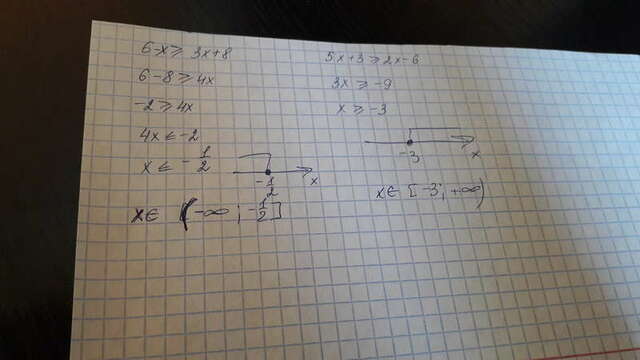 6-x ≥ 3x+8
6-8 ≥ 4x
-2 ≥ 4x
4x ≤ -2
x ≤ -1/2
-1/2 x
x ∈ (-∞ ; -1/2]
5x+3 ≥ 2x-6
3x ≥ -9
x ≥ -3
-3 x
x ∈ [-3; +∞)